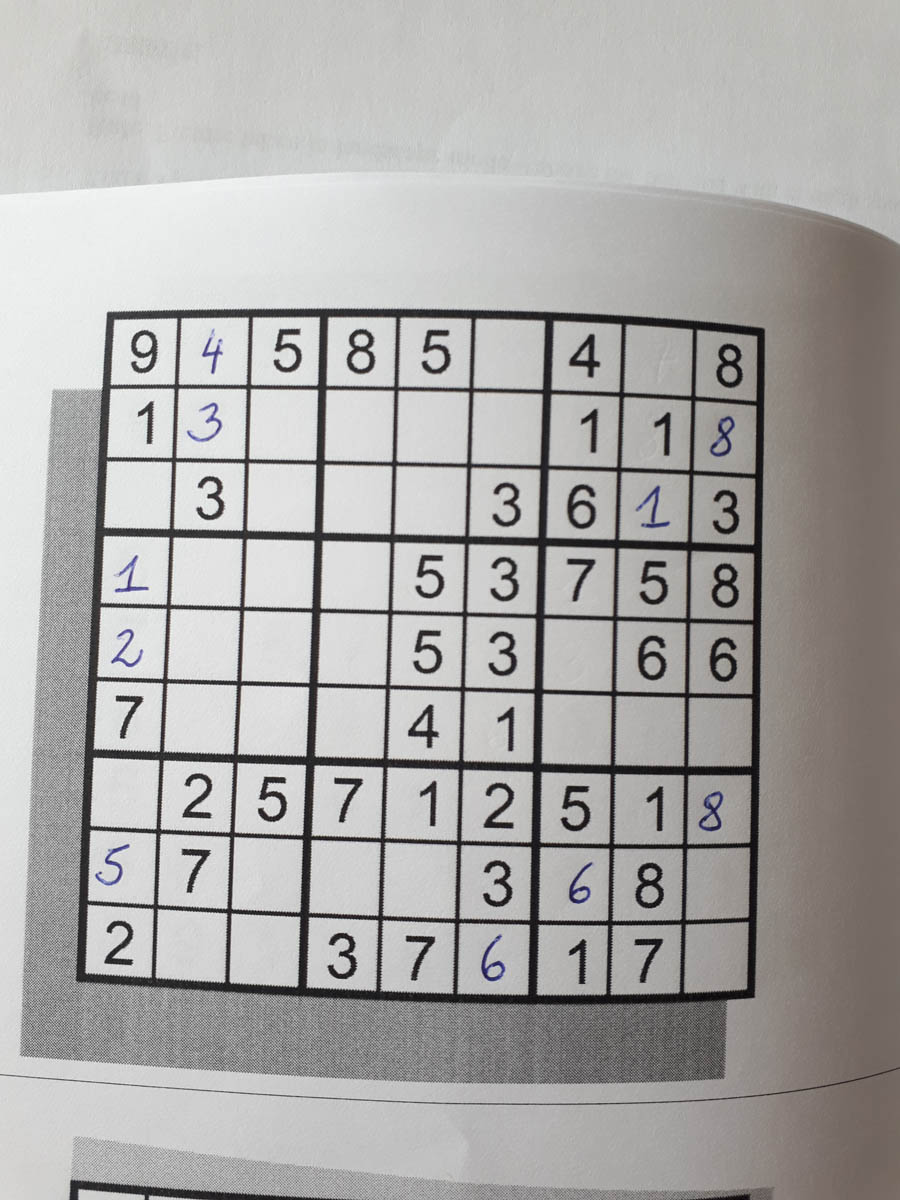 9 4 5 8 5 4 8
1 3 1 1 8
3 3 6 1 3
1 5 3 7 5 8
2 5 3 6 6
7 4 1
2 5 7 1 2 5 1 8
5 7 3 6 8
2 3 7 6 1 7